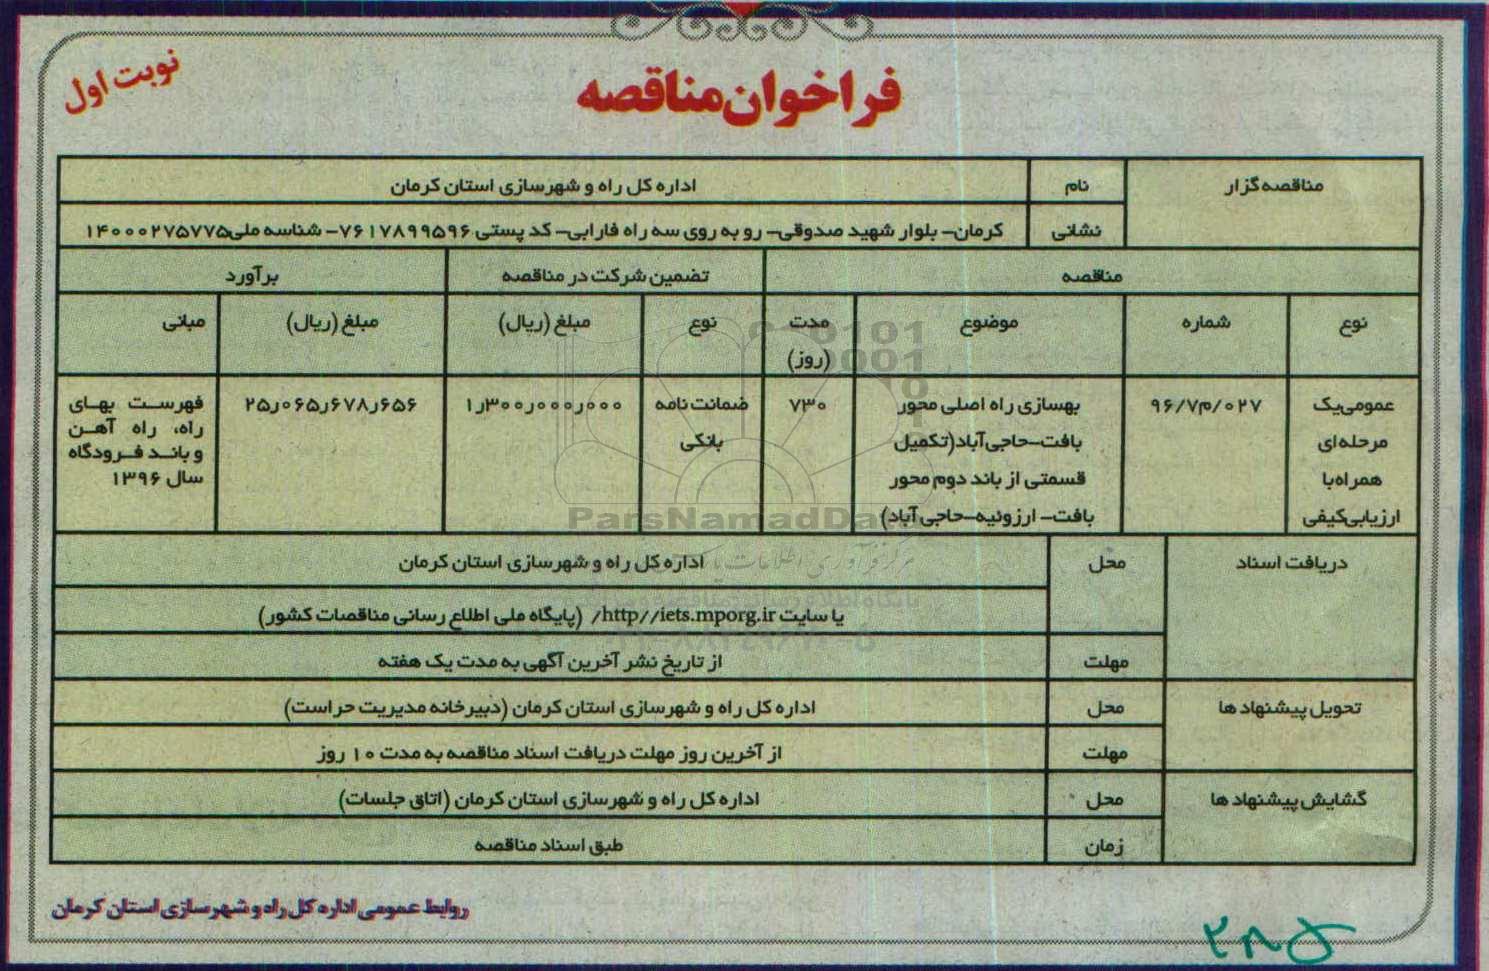 نوبت اول
فراخوان مناقصه
مناقصه گزار
نام
اداره کل راه و شهرسازی استان کرمان
نشانی
کرمان- بلوار شهید صدوقی- رو به روی سه راه فارابی- کد پستی ۷۶۱۷۸۹۹۵۹۶- شناسه ملی۱۴۰۰۰۲۷۵۷۷۵
مناقصه
تضمین شرکت در مناقصه
برآورد
نوع
شماره
موضوع
مدت
(روز)
نوع
مبلغ (ریال)
مبلغ (ریال)
مبانی
عمومی یک
مرحله ای
همراه با
ارزیابی کیفی
۹۶/۷م/۰۲۷
بهسازی راه اصلی محور
بافت-حاجی آباد(تکمیل
قسمتی از باند دوم محور
بافت- ارزوئیه-حاجی آباد)
۷۳۰
ضمانت نامه
بانکی
۱ر۳۰۰ر۰۰۰ر۰۰۰
۲۵ر۰۶۵ر۶۷۸ر۶۵۶
فهرست بهای
راه، راه آهن
و باند فرودگاه
سال ۱۳۹۶
دریافت اسناد
محل
اداره کل راه و شهرسازی استان کرمان
یا سایت http//iets.mporg.ir/ (پایگاه ملی اطلاع رسانی مناقصات کشور)
مهلت
از تاریخ نشر آخرین آگهی به مدت یک هفته
تحویل پیشنهاد ها
محل
اداره کل راه و شهرسازی استان کرمان (دبیرخانه مدیریت حراست)
مهلت
از آخرین روز مهلت دریافت اسناد مناقصه به مدت ۱۰ روز
گشایش پیشنهاد ها
محل
اداره کل راه و شهرسازی استان کرمان (اتاق جلسات)
زمان
طبق اسناد مناقصه
روابط عمومی اداره کل راه و شهرسازی استان کرمان
ParsNamadData